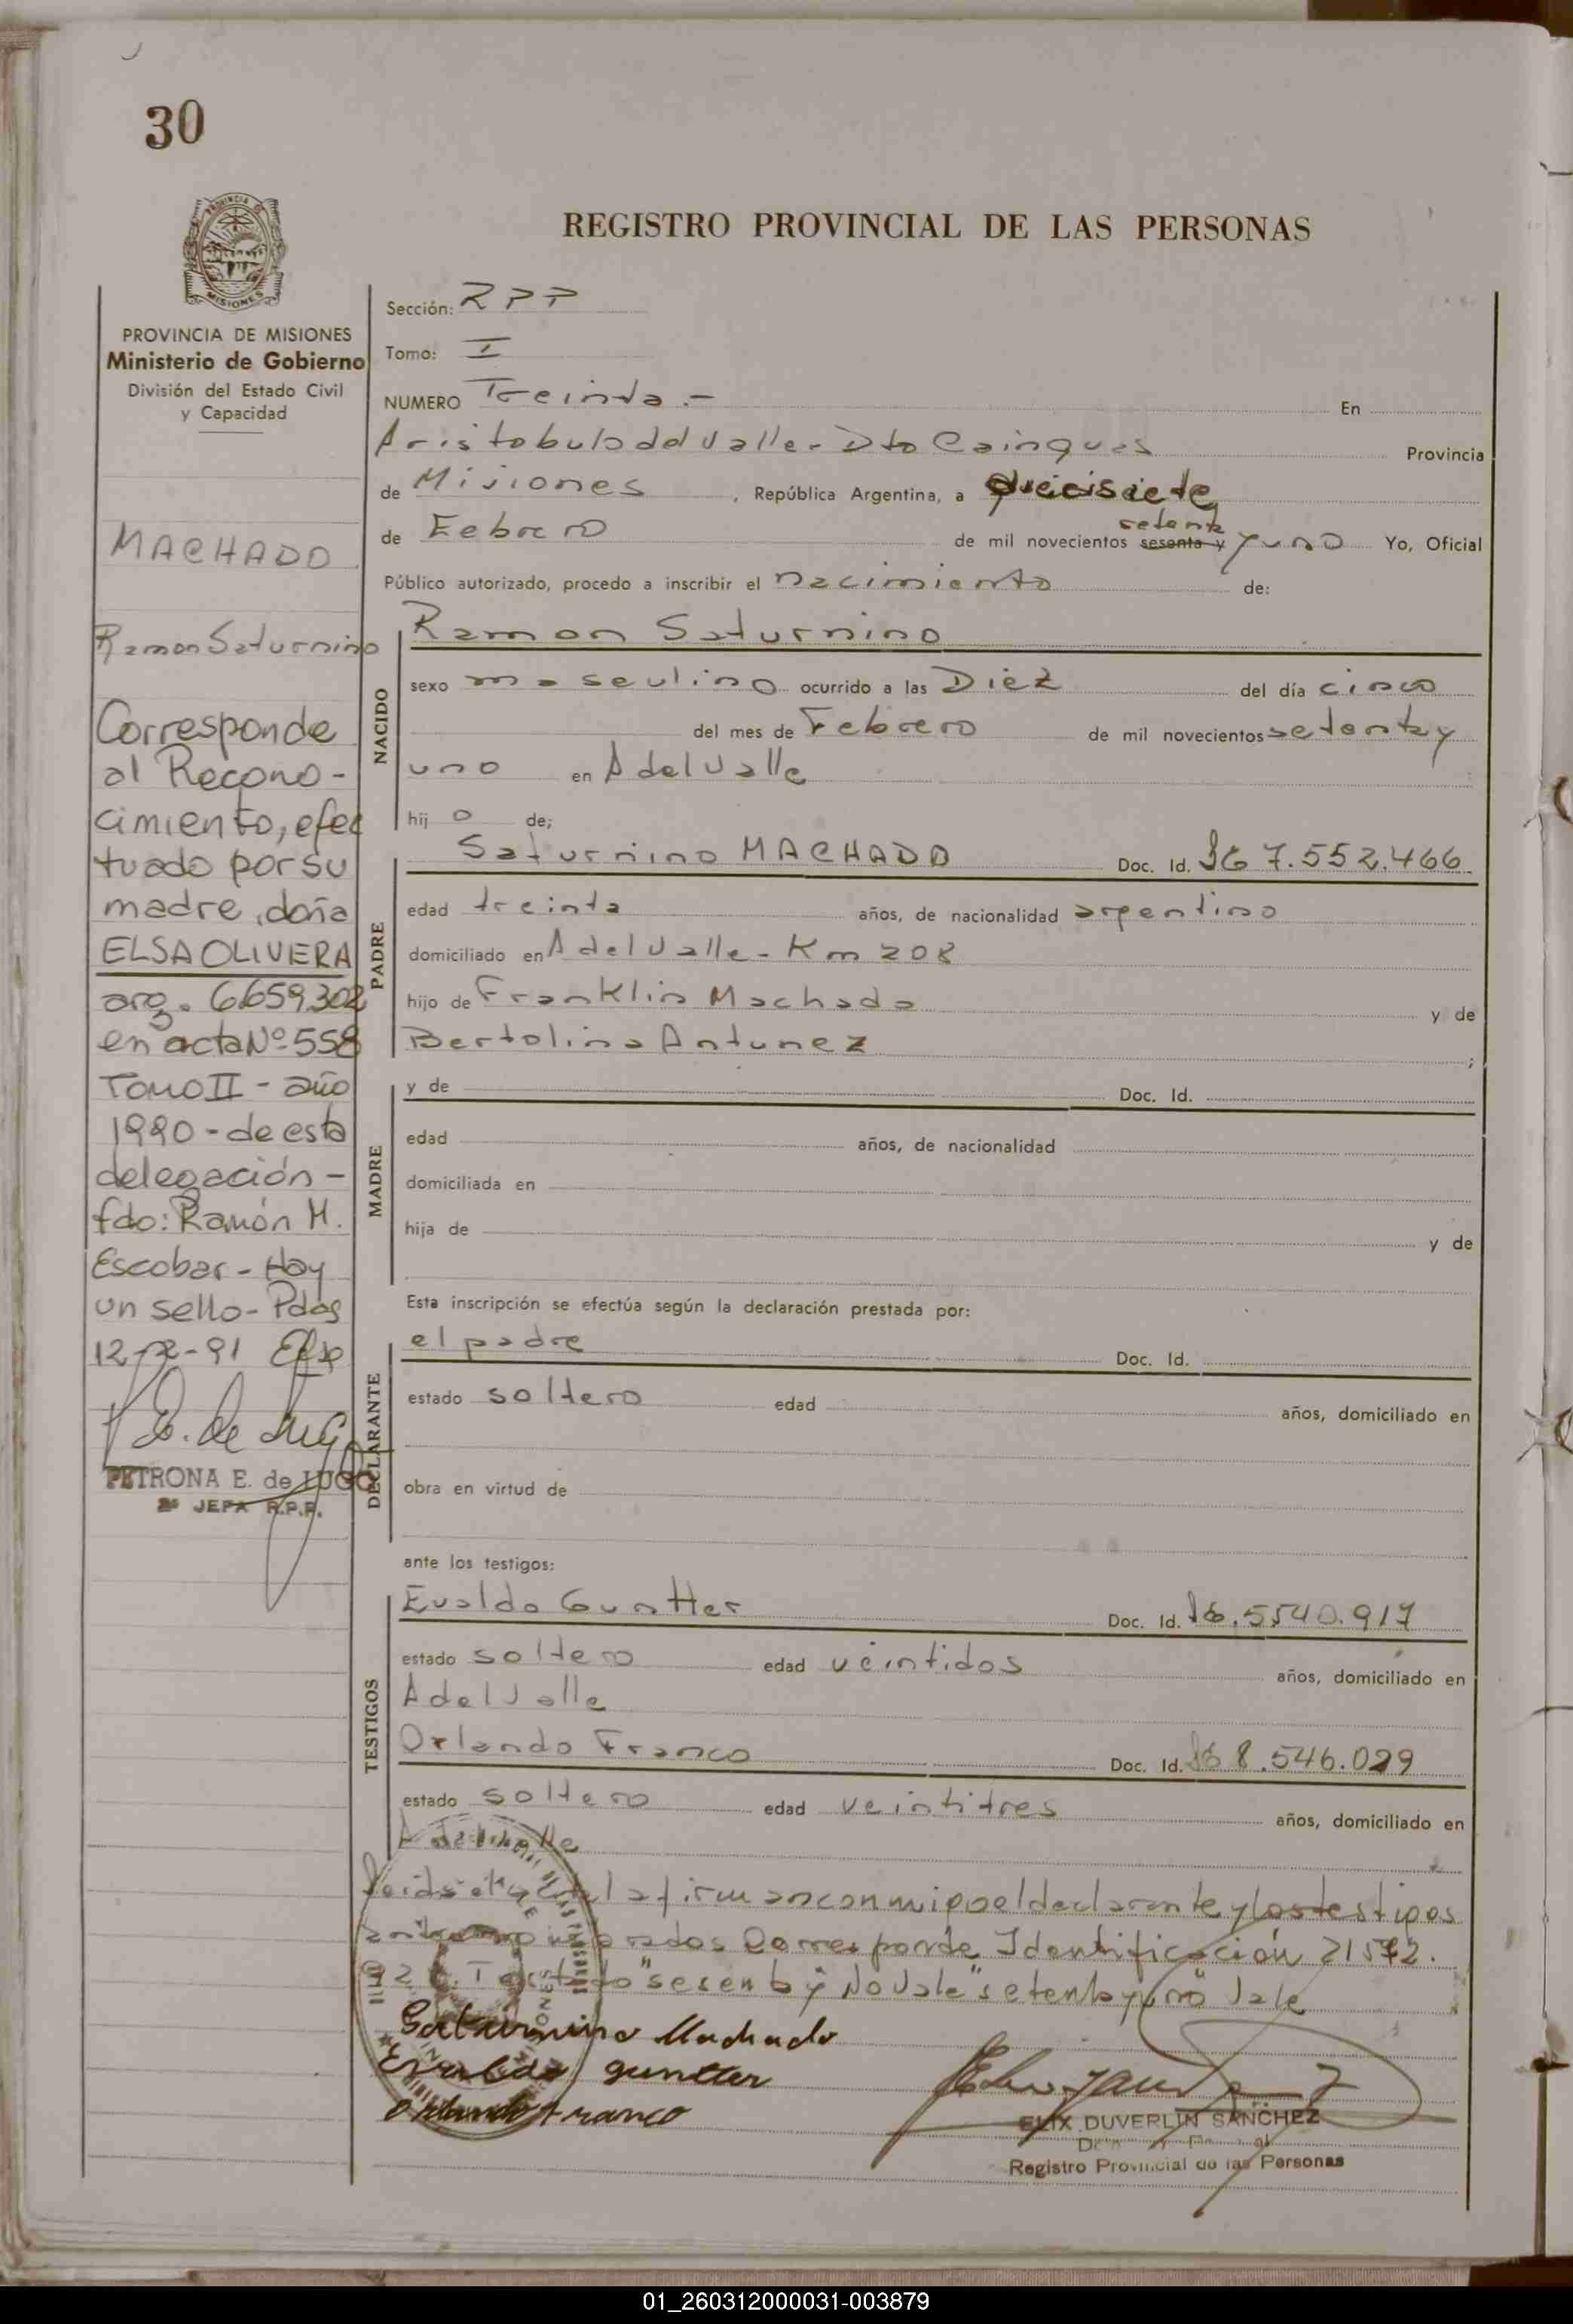 30
REGISTRO PROVINCIAL DE LAS PERSONAS
PROVINCIA DE MISIONES
Ministerio de Gobierno
División del Estado Civil
y Capacidad
MACHADO
Ramon Saturnino
Corresponde
al Recono-
cimiento, efec
tuado por su
madre, doña
ELSA OLIVERA
arg. 6.659.302
en acta Nº 558
Tomo II - año
1990 - de esta
delegación -
fdo: Ramón H.
Escobar - Hay
un sello - Pdas
12- -91
PETRONA E. de LUGO
2º JEFA R.P.P.
Sección: RPP
Tomo: I
NUMERO Treinta.- En
Aristobulo del Valle - Dto Cainguas Provincia
de Misiones, República Argentina, a diecisiete
de Febrero de mil novecientos sesenta y setenta y uno Yo, Oficial
Público autorizado, procedo a inscribir el nacimiento de:
NACIDO
Ramon Saturnino
sexo masculino ocurrido a las Diez del día cinco
del mes de Febrero de mil novecientos setenta y
uno en A del Valle
hij o de;
PADRE
Saturnino MACHADO Doc. Id. 7.552.466
edad treinta años, de nacionalidad argentino
domiciliado en A del Valle - Km 208
hijo de Franklin Machado y de
Bertolina Antunez ;
MADRE
y de Doc. Id.
edad años, de nacionalidad
domiciliada en
hija de y de
Esta inscripción se efectúa según la declaración prestada por:
DECLARANTE
el padre Doc. Id.
estado soltero edad años, domiciliado en
obra en virtud de
ante los testigos:
TESTIGOS
Evaldo Guntter Doc. Id. 5.540.917
estado soltero edad veintidos años, domiciliado en
A del Valle
Orlando Franco Doc. Id. 8.546.029
estado soltero edad veintitres años, domiciliado en
A del Valle
Leida el acta la firman conmigo el declarante y los testigos
Corresponde Identificación
"sesenta y" No Vale "setenta y uno" Vale
Saturnino Machado
Evaldo guntter
Orlando Franco
ELIX DUVERLIN SANCHEZ
Registro Provincial de las Personas
01_260312000031-003879